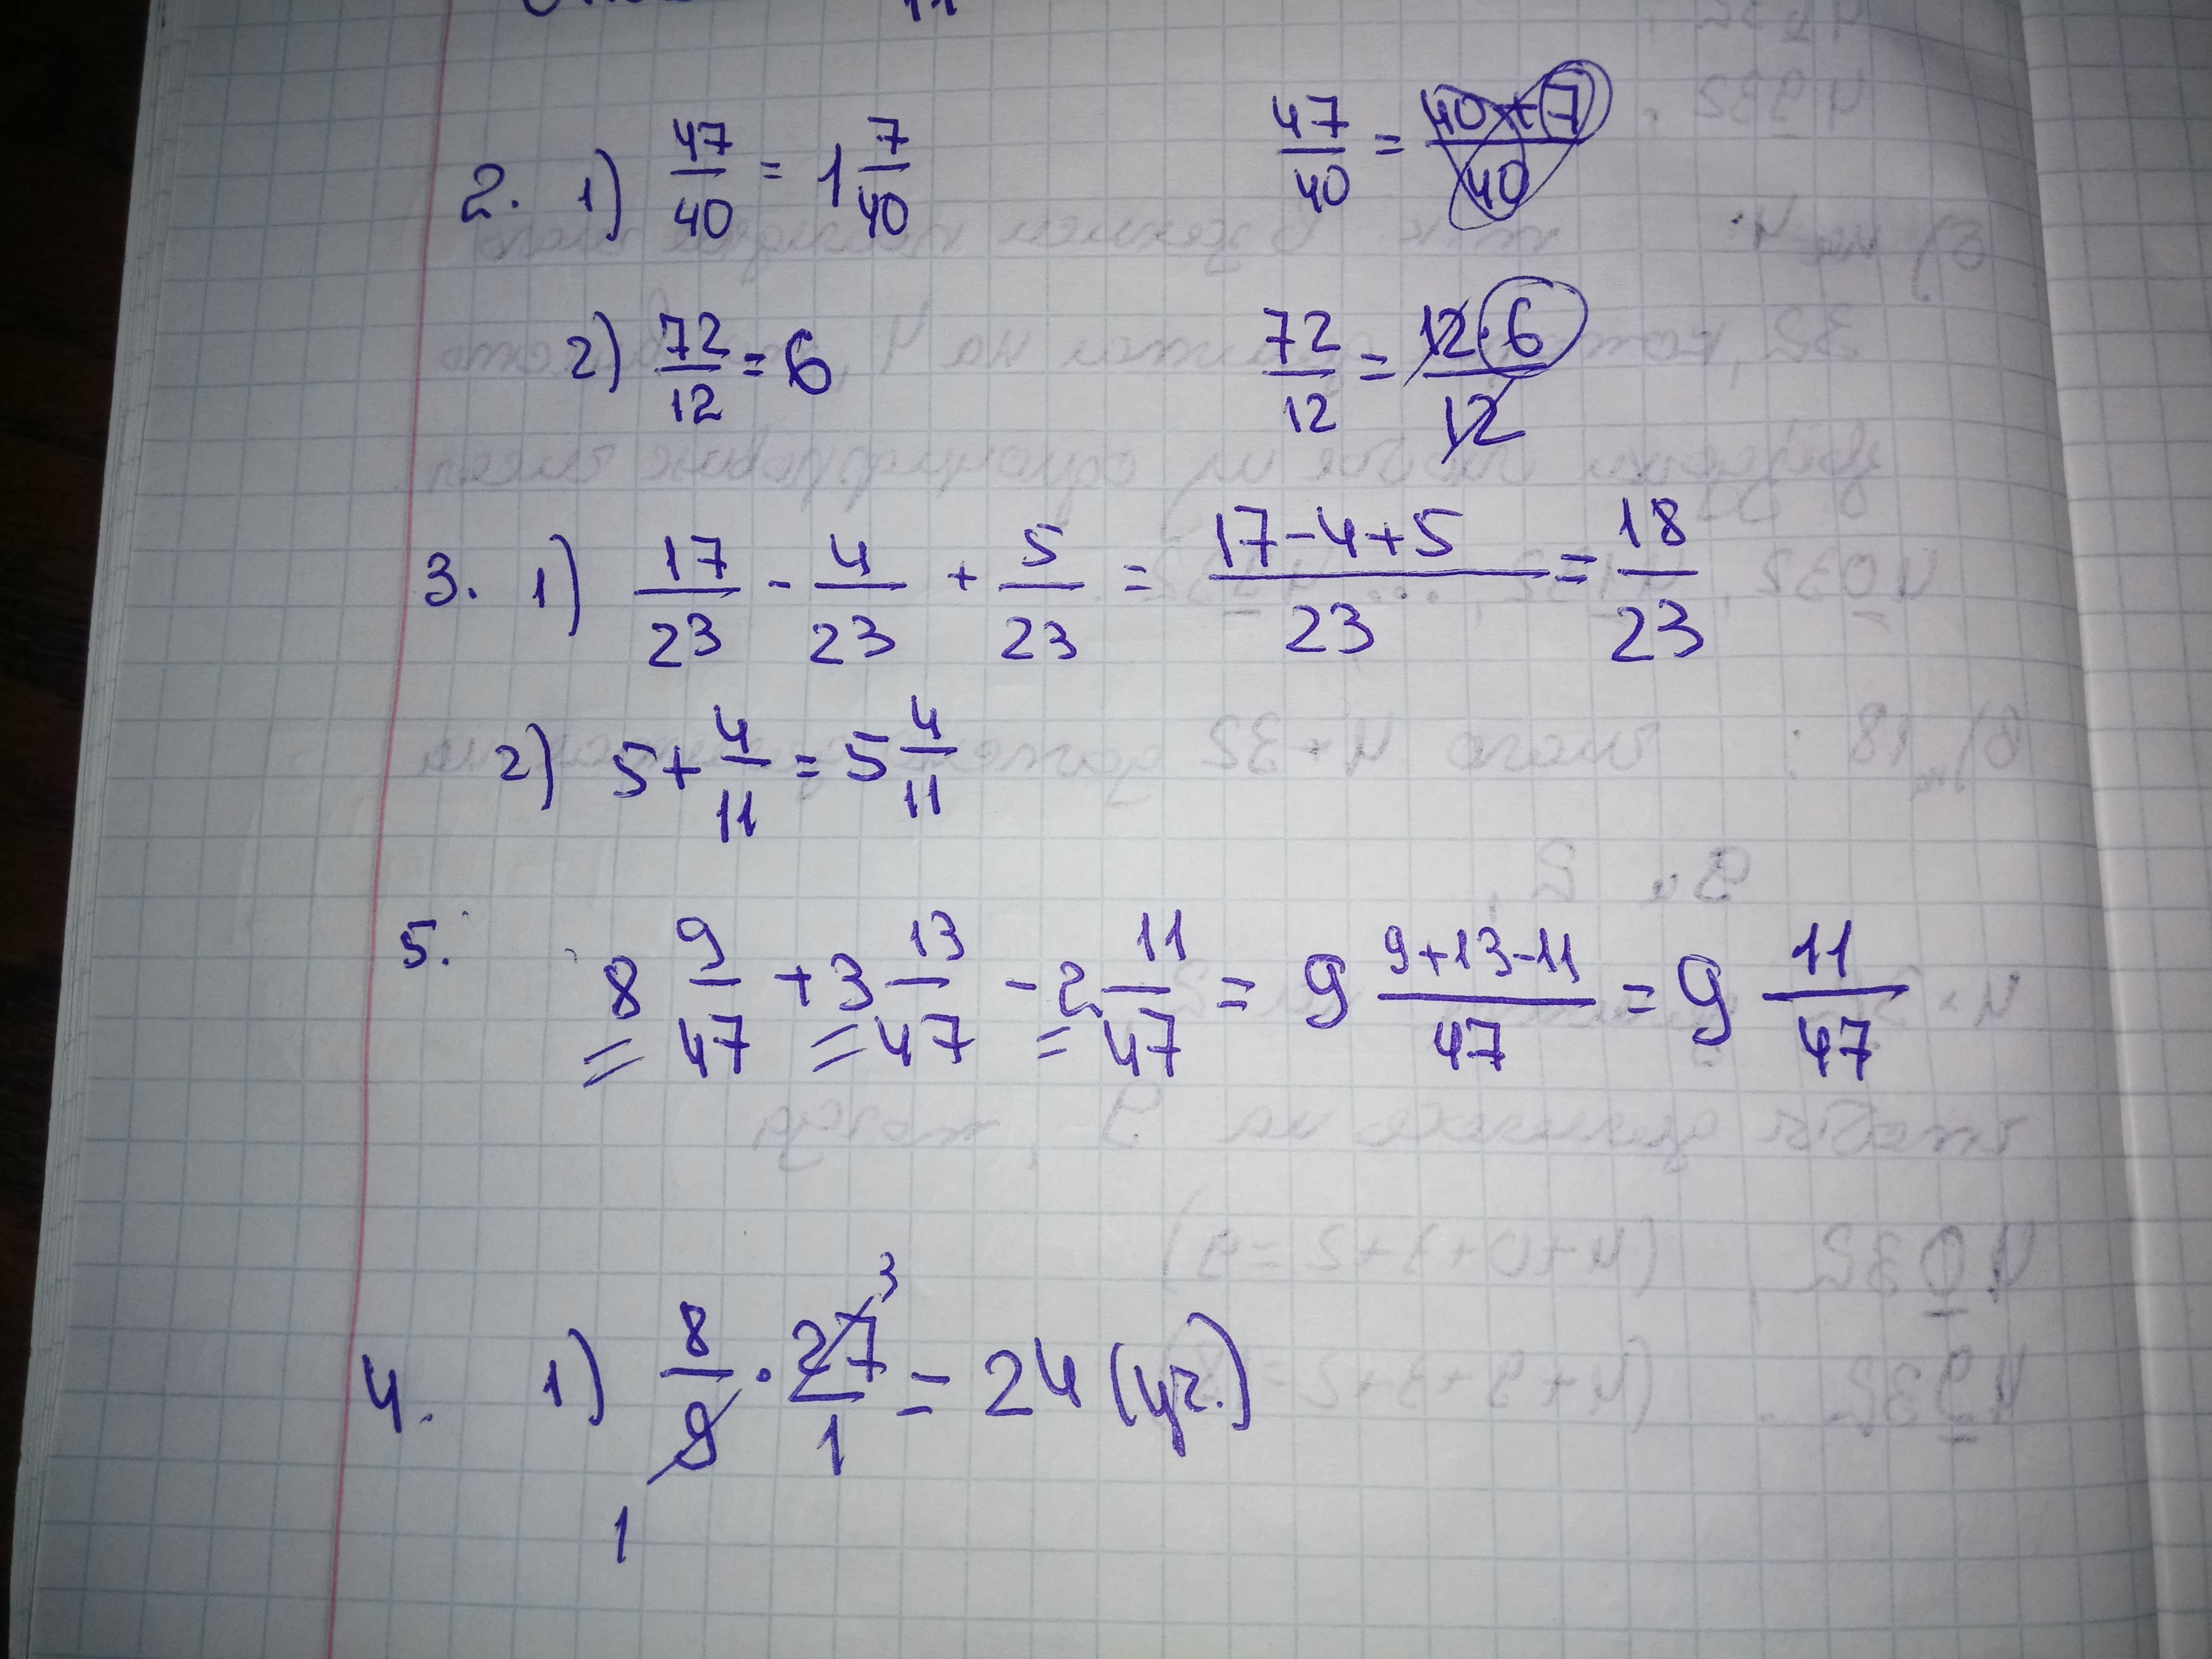 2. 1) 47/40 = 1 7/40    47/40 = (40+7)/40
2) 72/12 = 6    72/12 = (12·6)/12
3. 1) 17/23 - 4/23 + 5/23 = (17-4+5)/23 = 18/23
2) 5 + 4/11 = 5 4/11
5. 8 9/47 + 3 13/47 - 2 11/47 = 9 (9+13-11)/47 = 9 11/47
4. 1) 8/9 · 27/1 = 24 (уч.)
3
1